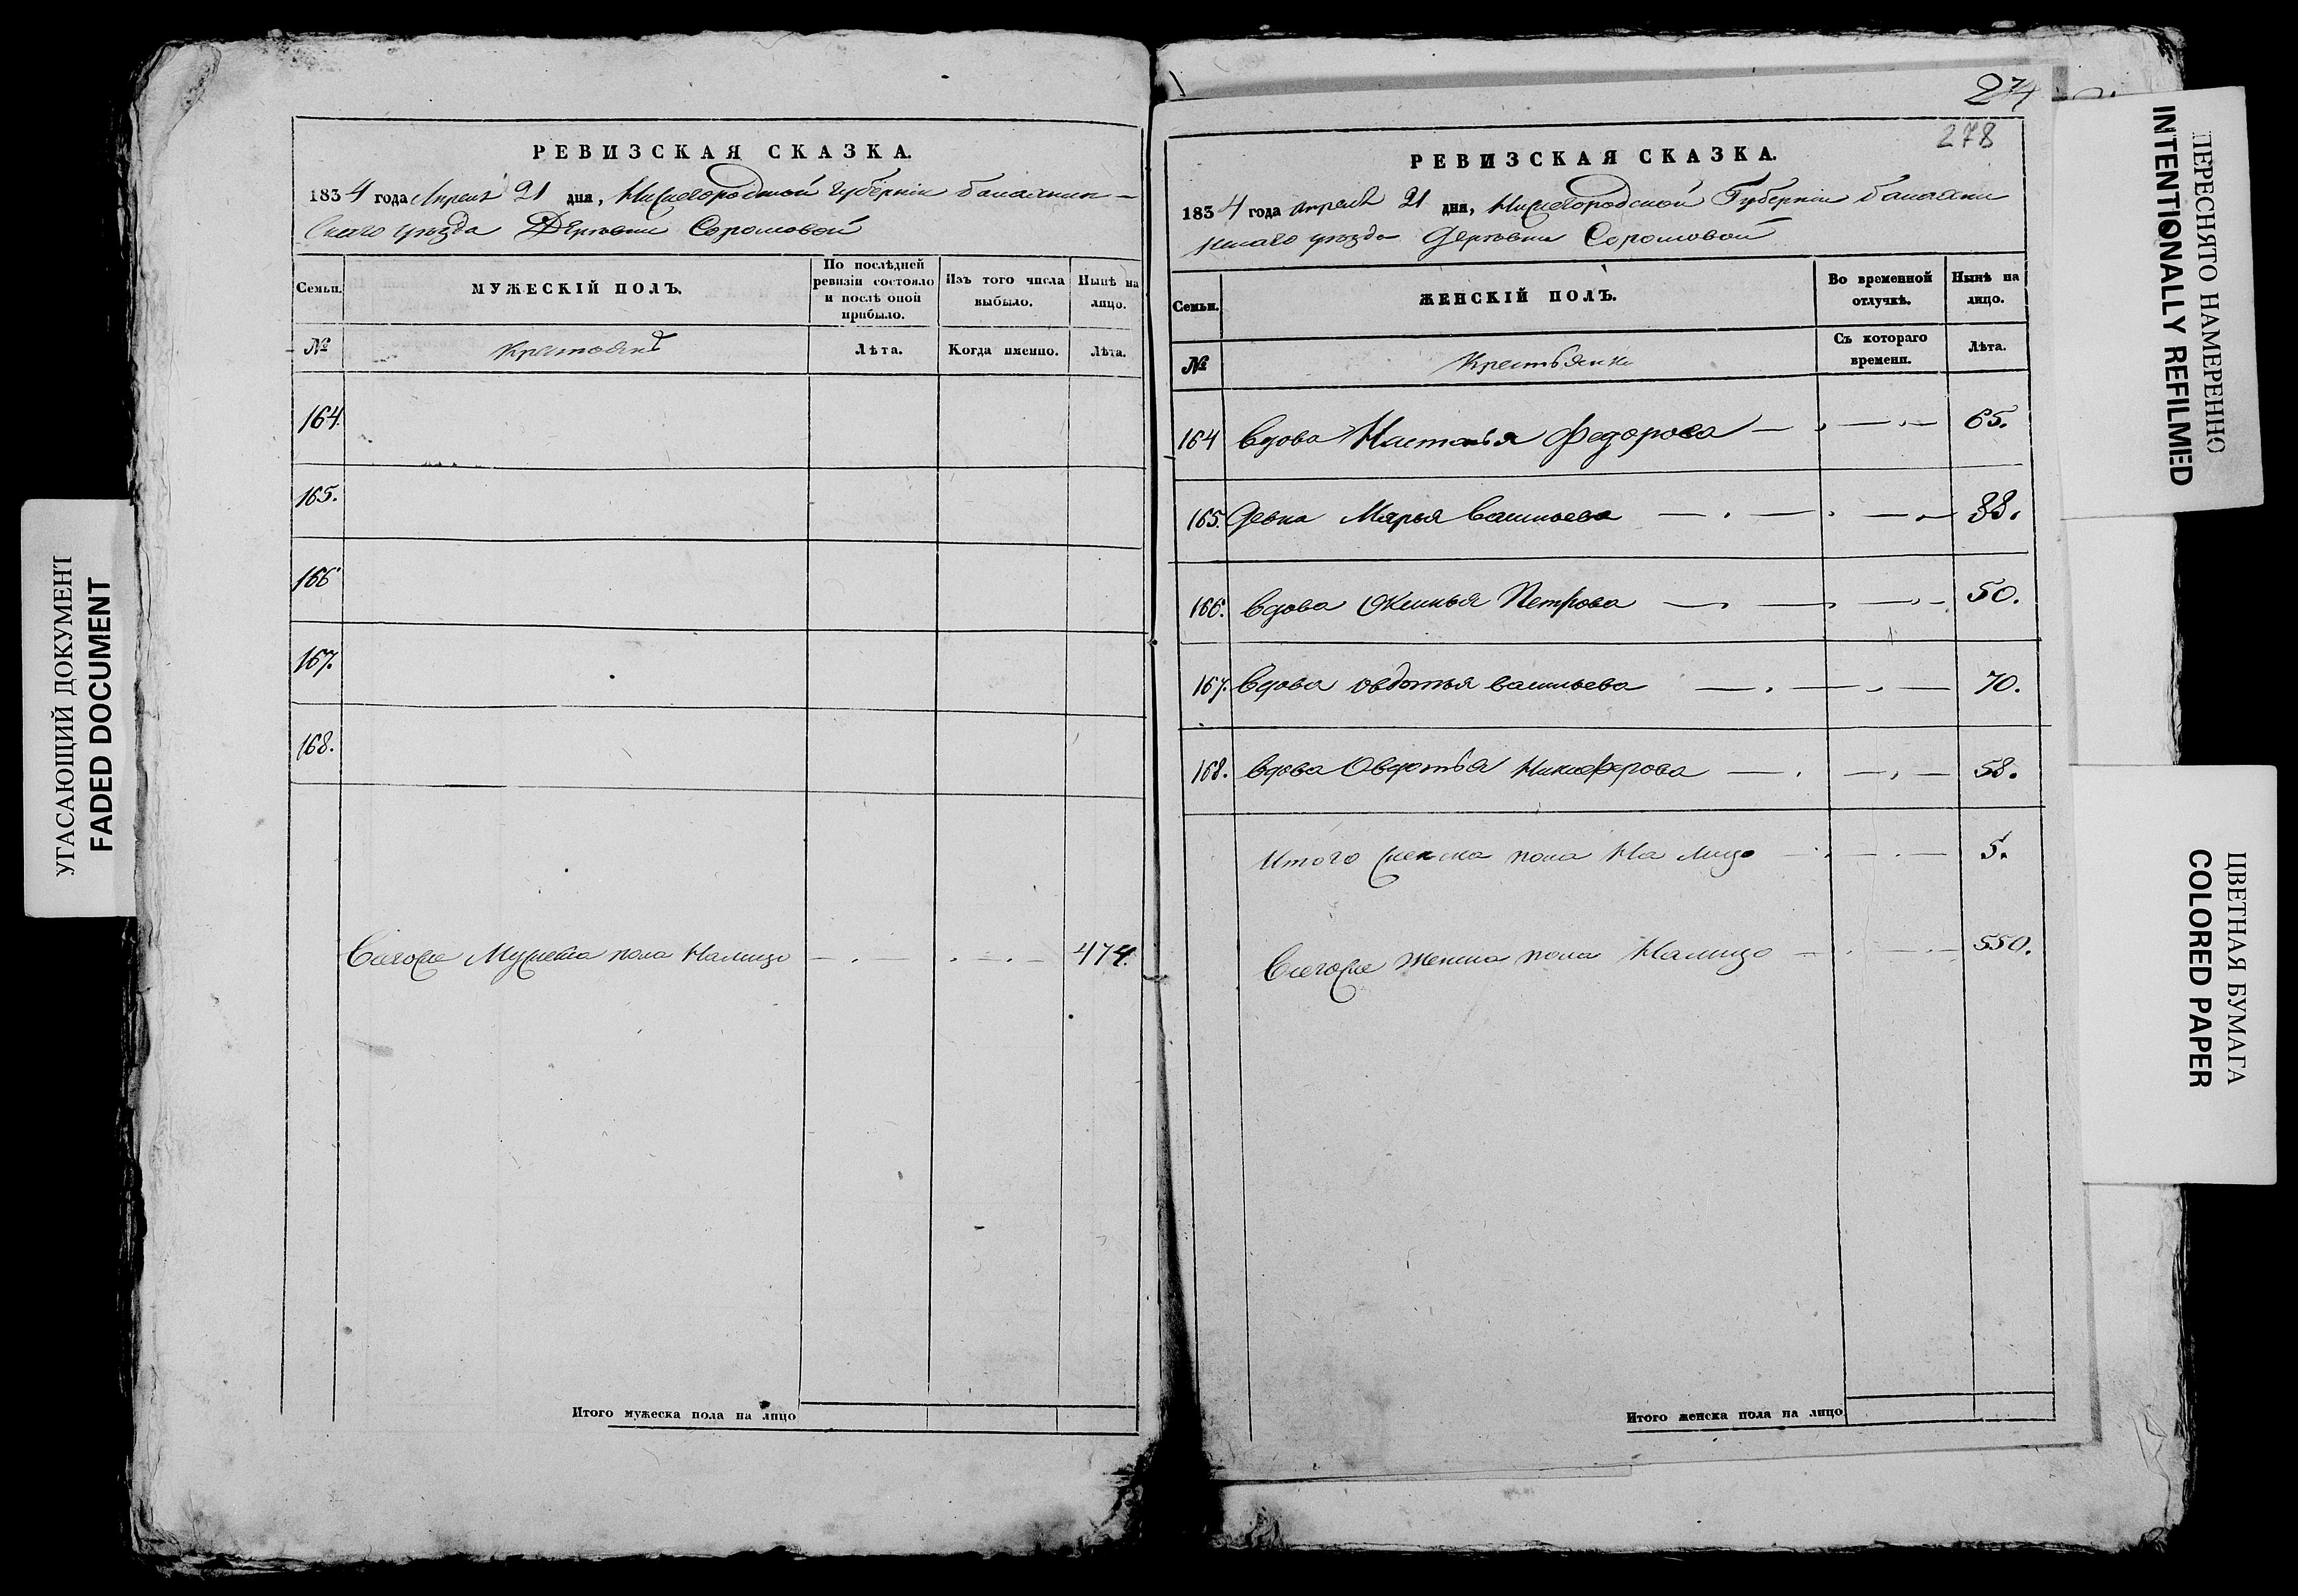 УГАСАЮЩИЙ ДОКУМЕНТ
FADED DOCUMENT
РЕВИЗСКАЯ СКАЗКА.
1834 года Апреля 21 дня, Нижегородской Губерніи Балахнин-
скаго уѣзда Деревни Соромовой
Семьи.
МУЖЕСКІЙ ПОЛЪ.
По послѣдней ревизіи состояло и послѣ оной прибыло.
Изъ того числа выбыло.
Нынѣ на лицо.
№
Крестьянъ
Лѣта.
Когда именно.
Лѣта.
164.
165.
166.
167.
168.
Всегоже Мужеска пола Налицо — . — . — . — 474.
Итого мужеска пола на лицо
274
278
РЕВИЗСКАЯ СКАЗКА.
1834 года апреля 21 дня, Нижегородской Губерніи Балахни
нскаго уѣзда Деревни Соромовой
Семьи.
ЖЕНСКІЙ ПОЛЪ.
Во временной отлучкѣ.
Нынѣ на лицо.
№
Крестьянки
Съ котораго времени.
Лѣта.
164 Вдова Настасья Федорова — . — . — 65.
165. Девка Марья Васильева — . — . — . — 38.
166. Вдова Оксинья Петрова — . — . — . — 50.
167. Вдова Овдотья Васильева — . — . — 70.
168. Вдова Овдотья Никифорова — . — . — 58.
Итого женска пола На лицо — . — . — 5.
Всегоже женска пола Налицо — . — . — 550.
Итого женска пола на лицо
ПЕРЕСНЯТО НАМЕРЕННО
INTENTIONALLY REFILMED
ЦВЕТНАЯ БУМАГА
COLORED PAPER